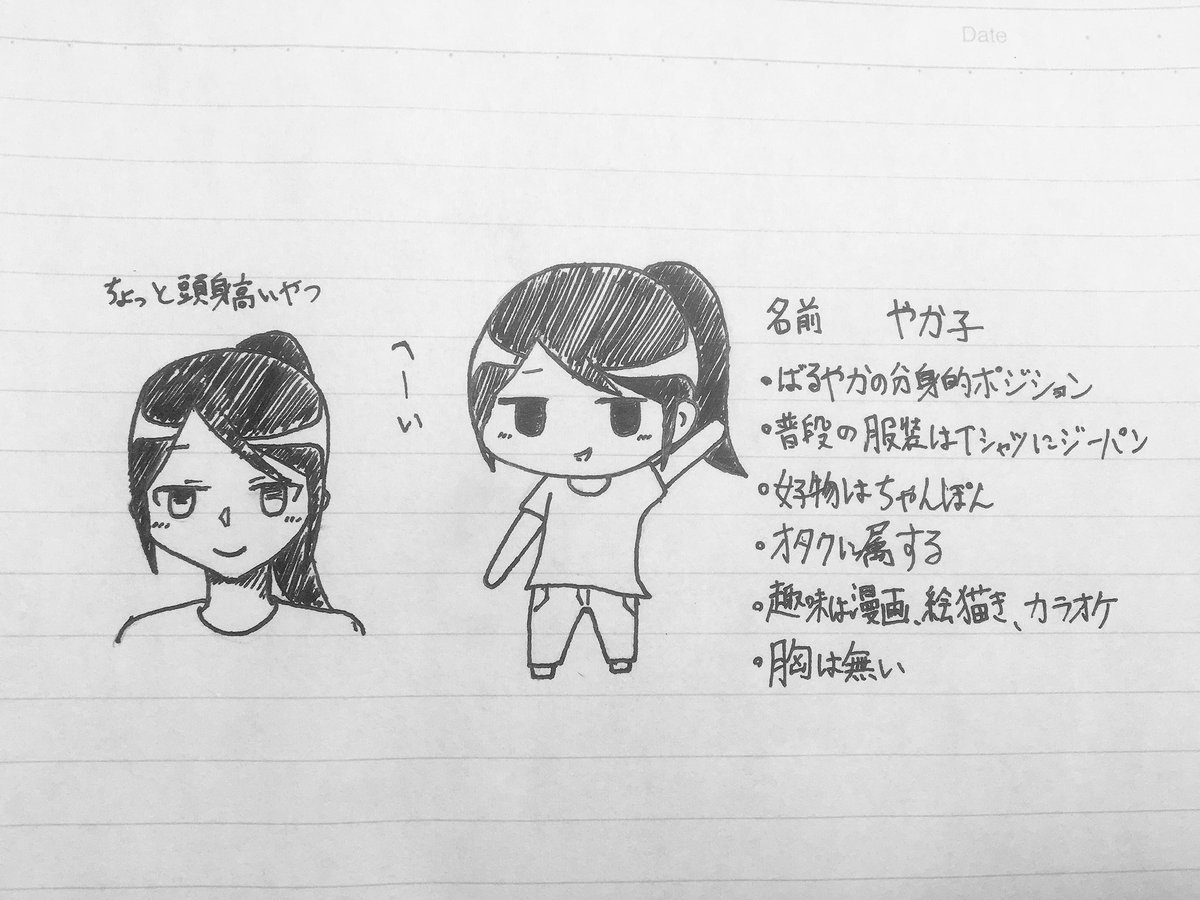 Date
ちょっと頭身高いやつ
へーい
名前 やか子
•ばるやかの分身的ポジション
•普段の服装はTシャツにジーパン
•好物はちゃんぽん
•オタクに属する
•趣味は漫画、絵描き、カラオケ
•胸は無い